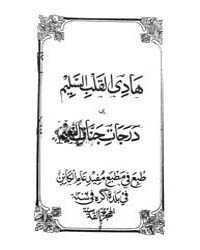 هادي القلب السليم
إلى
درجات جنات النعيم
طبع في مطبع مفيد عام الكائن
في بلدة اكره في
الهجرية